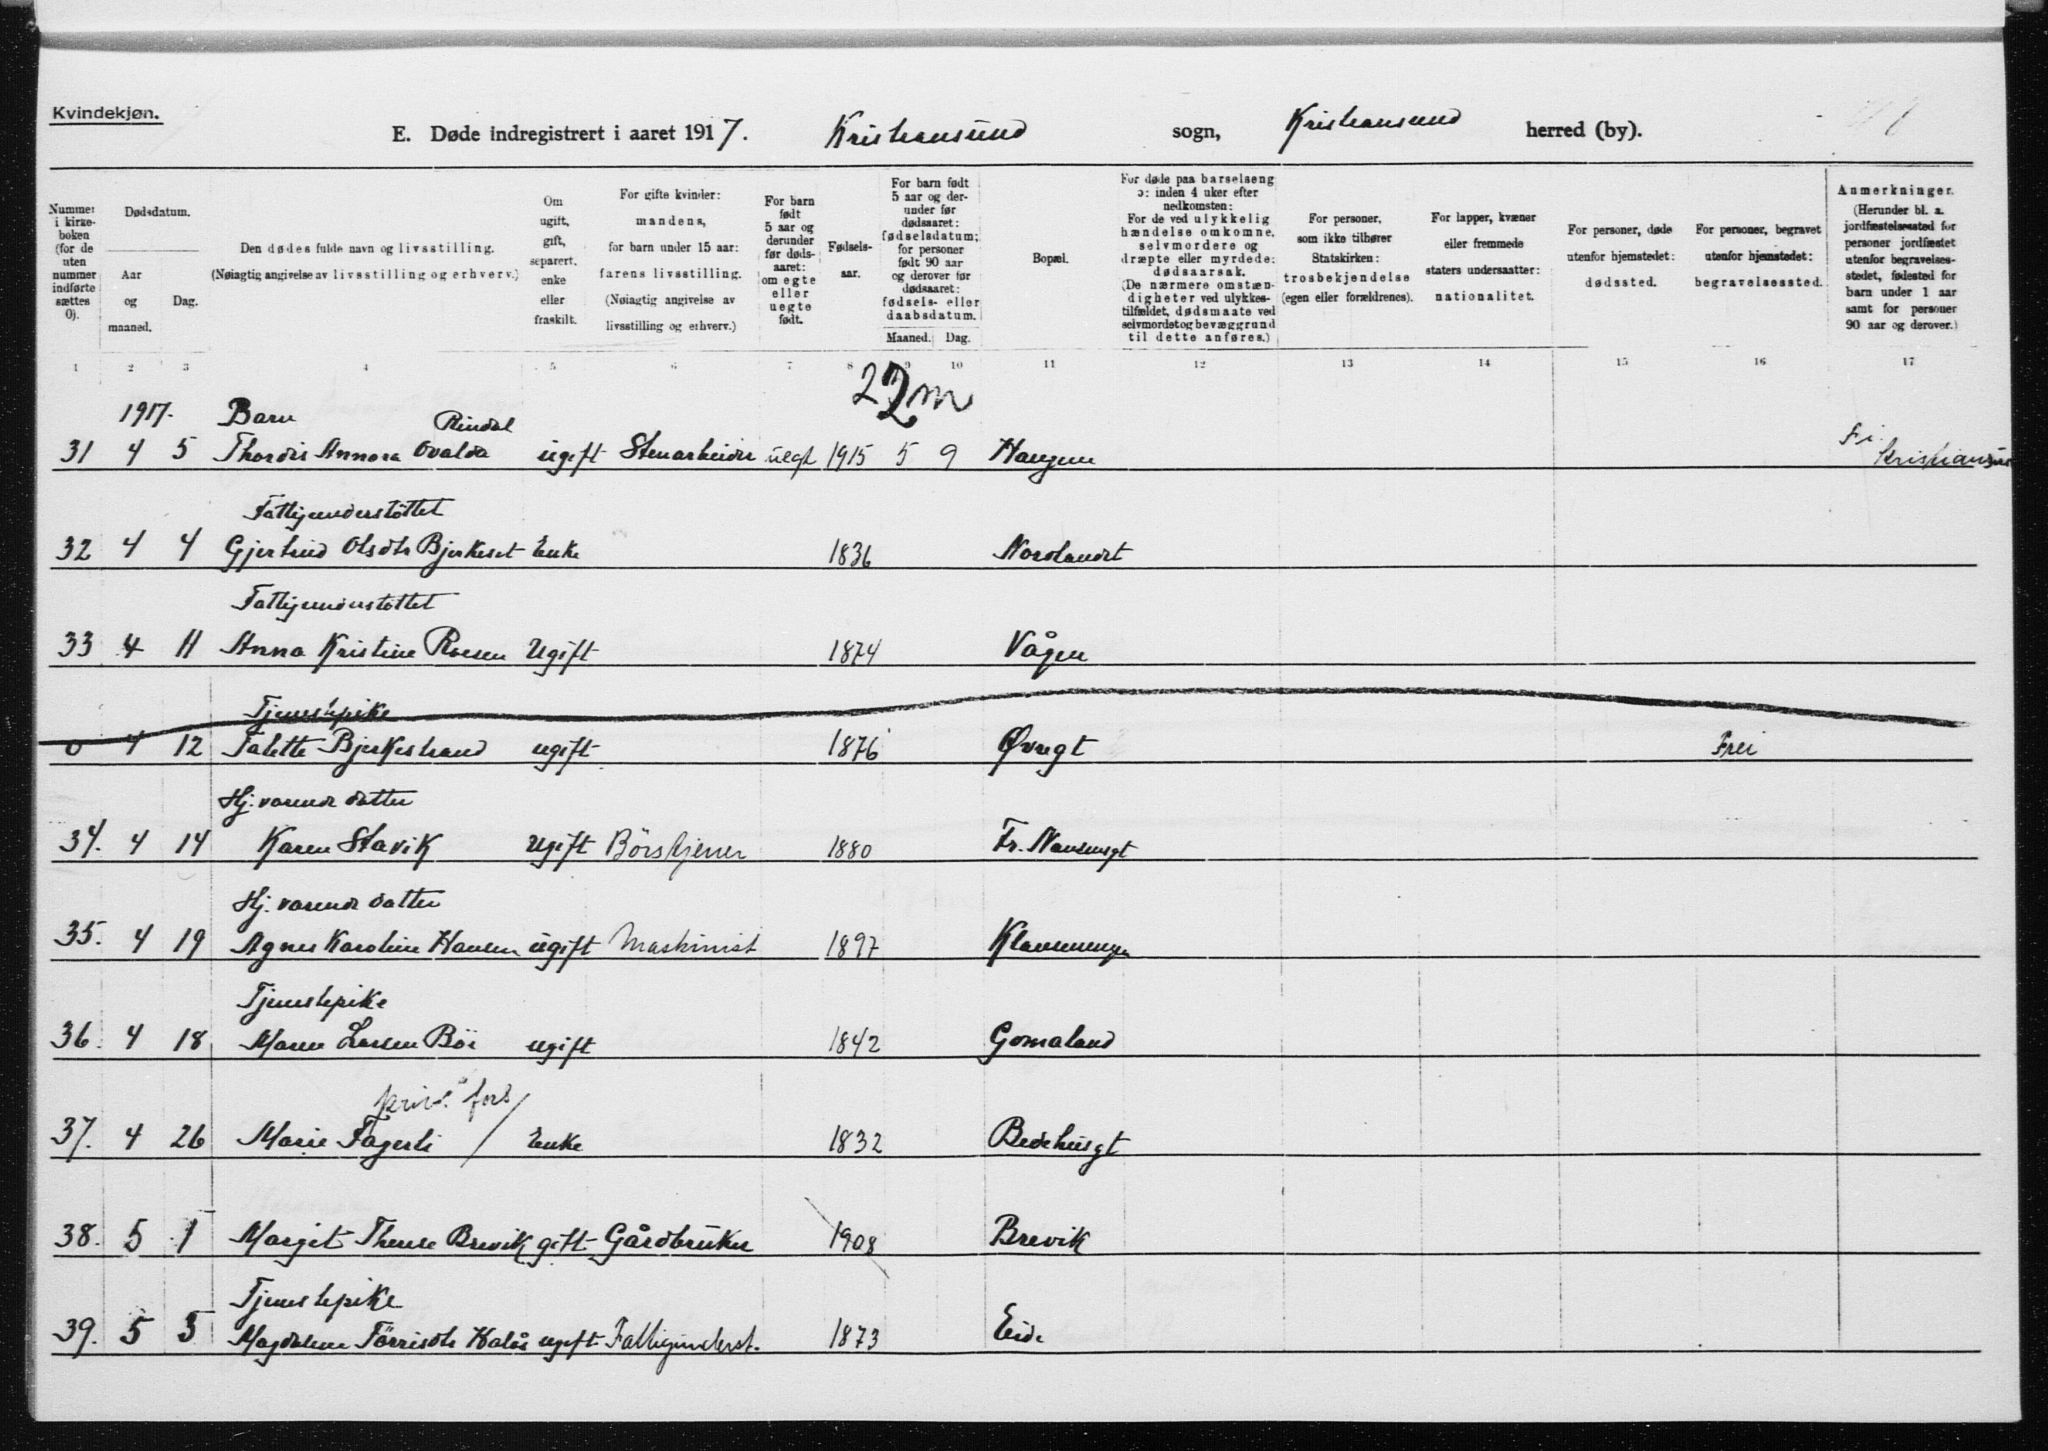 Kvindekjøn.
E. Døde indregistrert i aaret 1917. Kristiansund sogn, Kristiansund herred (by).
Nummer i kirkeboken (for de uten nummer indførte sættes 0).
Dødsdatum.
Aar og maaned.
Dag.
Den dødes fulde navn og livsstilling.
(Nøiagtig angivelse av livsstilling og erhverv.)
Om ugift, gift, separert, enke eller fraskilt.
For gifte kvinder: mandens, for barn under 15 aar: farens livsstilling. (Nøiagtig angivelse av livsstilling og erhverv.)
For barn født 5 aar og derunder før dødsaaret: om egte eller uegte født.
Fødselsaar.
For barn født 5 aar og derunder før dødsaaret: fødselsdatum; for personer født 90 aar og derover før dødsaaret: fødsels- eller daabsdatum.
Maaned. Dag.
Bopæl.
For døde paa barselseng ɔ: inden 4 uker efter nedkomsten: For de ved ulykkelig hændelse omkomne, selvmordere og dræpte eller myrdede: dødsaarsak. (De nærmere omstændigheter ved ulykkestilfældet, dødsmaate ved selvmordet og bevæggrund til dette anføres.)
For personer, som ikke tilhører Statskirken: trosbekjendelse (egen eller forældrenes).
For lapper, kvæner eller fremmede staters undersaatter: nationalitet.
For personer, døde utenfor hjemstedet: dødssted.
For personer, begravet utenfor hjemstedet: begravelsessted.
Anmerkninger. (Herunder bl. a. jordfæstelsessted for personer jordfæstet utenfor begravelsesstedet, fødested for barn under 1 aar samt for personer 90 aar og derover.)
1 2 3 4 5 6 7 8 9 10 11 12 13 14 15 16 17
22 m
1917. Barn Rindal
31 4 5 Thordis Annora Ovalda ugift Stenarbeider uegt 1915 5 9 Haugen F. i. Kristiansund
Fattigunderstöttet
32 4 4 Gjertrud Olsdtr Bjerkeset Enke 1836 Nordlandet
Fattigunderstöttet
33 4 11 Anna Kristine Roesen Ugift 1874 Vågen
Tjenestepike
0 4 12 Talette Bjerkestrand ugift 1876 Øvregt Frei
Hj. varende datter
34. 4 14 Karen Stavik Ugift Börstjener 1880 Fr. Nansensgt
Hj. varende datter
35. 4 19 Agnes Karoline Hansen ugift Maskinist 1897 Klaussenengen
Tjenestepike
36. 4 18 Maren Larsen Böe ugift 1842 Gomaland
priv. fors
37. 4 26 Marie Fagerli / Enke 1832 Bedehusgt
38. 5 1 Margit Therese Brevik gift Gårdbruker 1908 Brevik
Tjenestepike
39. 5 3 Magdalene Törrisdtr Halås ugift Fattigunderst. 1873 Eide